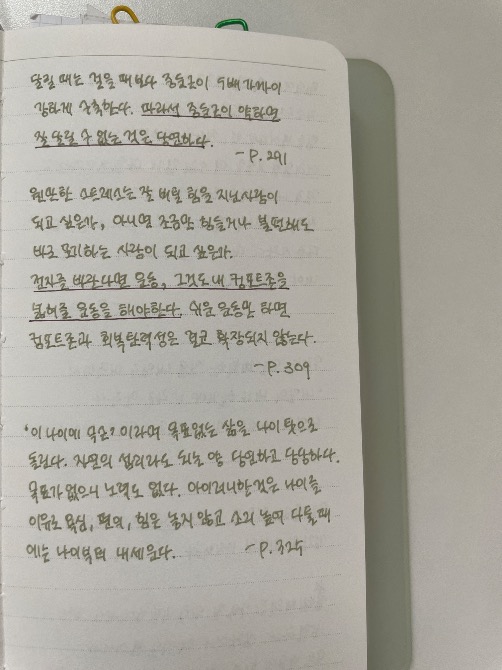 달릴 때는 걸을 때보다 중둔근이 두배 가까이
강하게 수축한다. 따라서 중둔근이 약하면
잘 달릴 수 없는 것은 당연하다.
- P.291
웬만한 스트레스는 잘 버틸 힘을 지닌 사람이
되고 싶은가, 아니면 조금만 힘들거나 불편해도
바로 포기하는 사람이 되고 싶은가.
전자를 바란다면 운동, 그것도 내 컴포트존을
넓혀줄 운동을 해야한다. 쉬운 운동만 하면
컴포트존과 회복탄력성은 결코 확장되지 않는다.
- P.309
'이 나이에 무슨' 이라며 목표없는 삶을 나이 탓으로
돌린다. 자연의 섭리라도 되는 양 당연하고 당당하다.
목표가 없으니 노력도 없다. 아이러니한 것은 나이를
이유로 욕심, 편의, 힘은 놓지 않고 소리 높여 다툴 때
에는 나이부터 내세운다.
- P.325